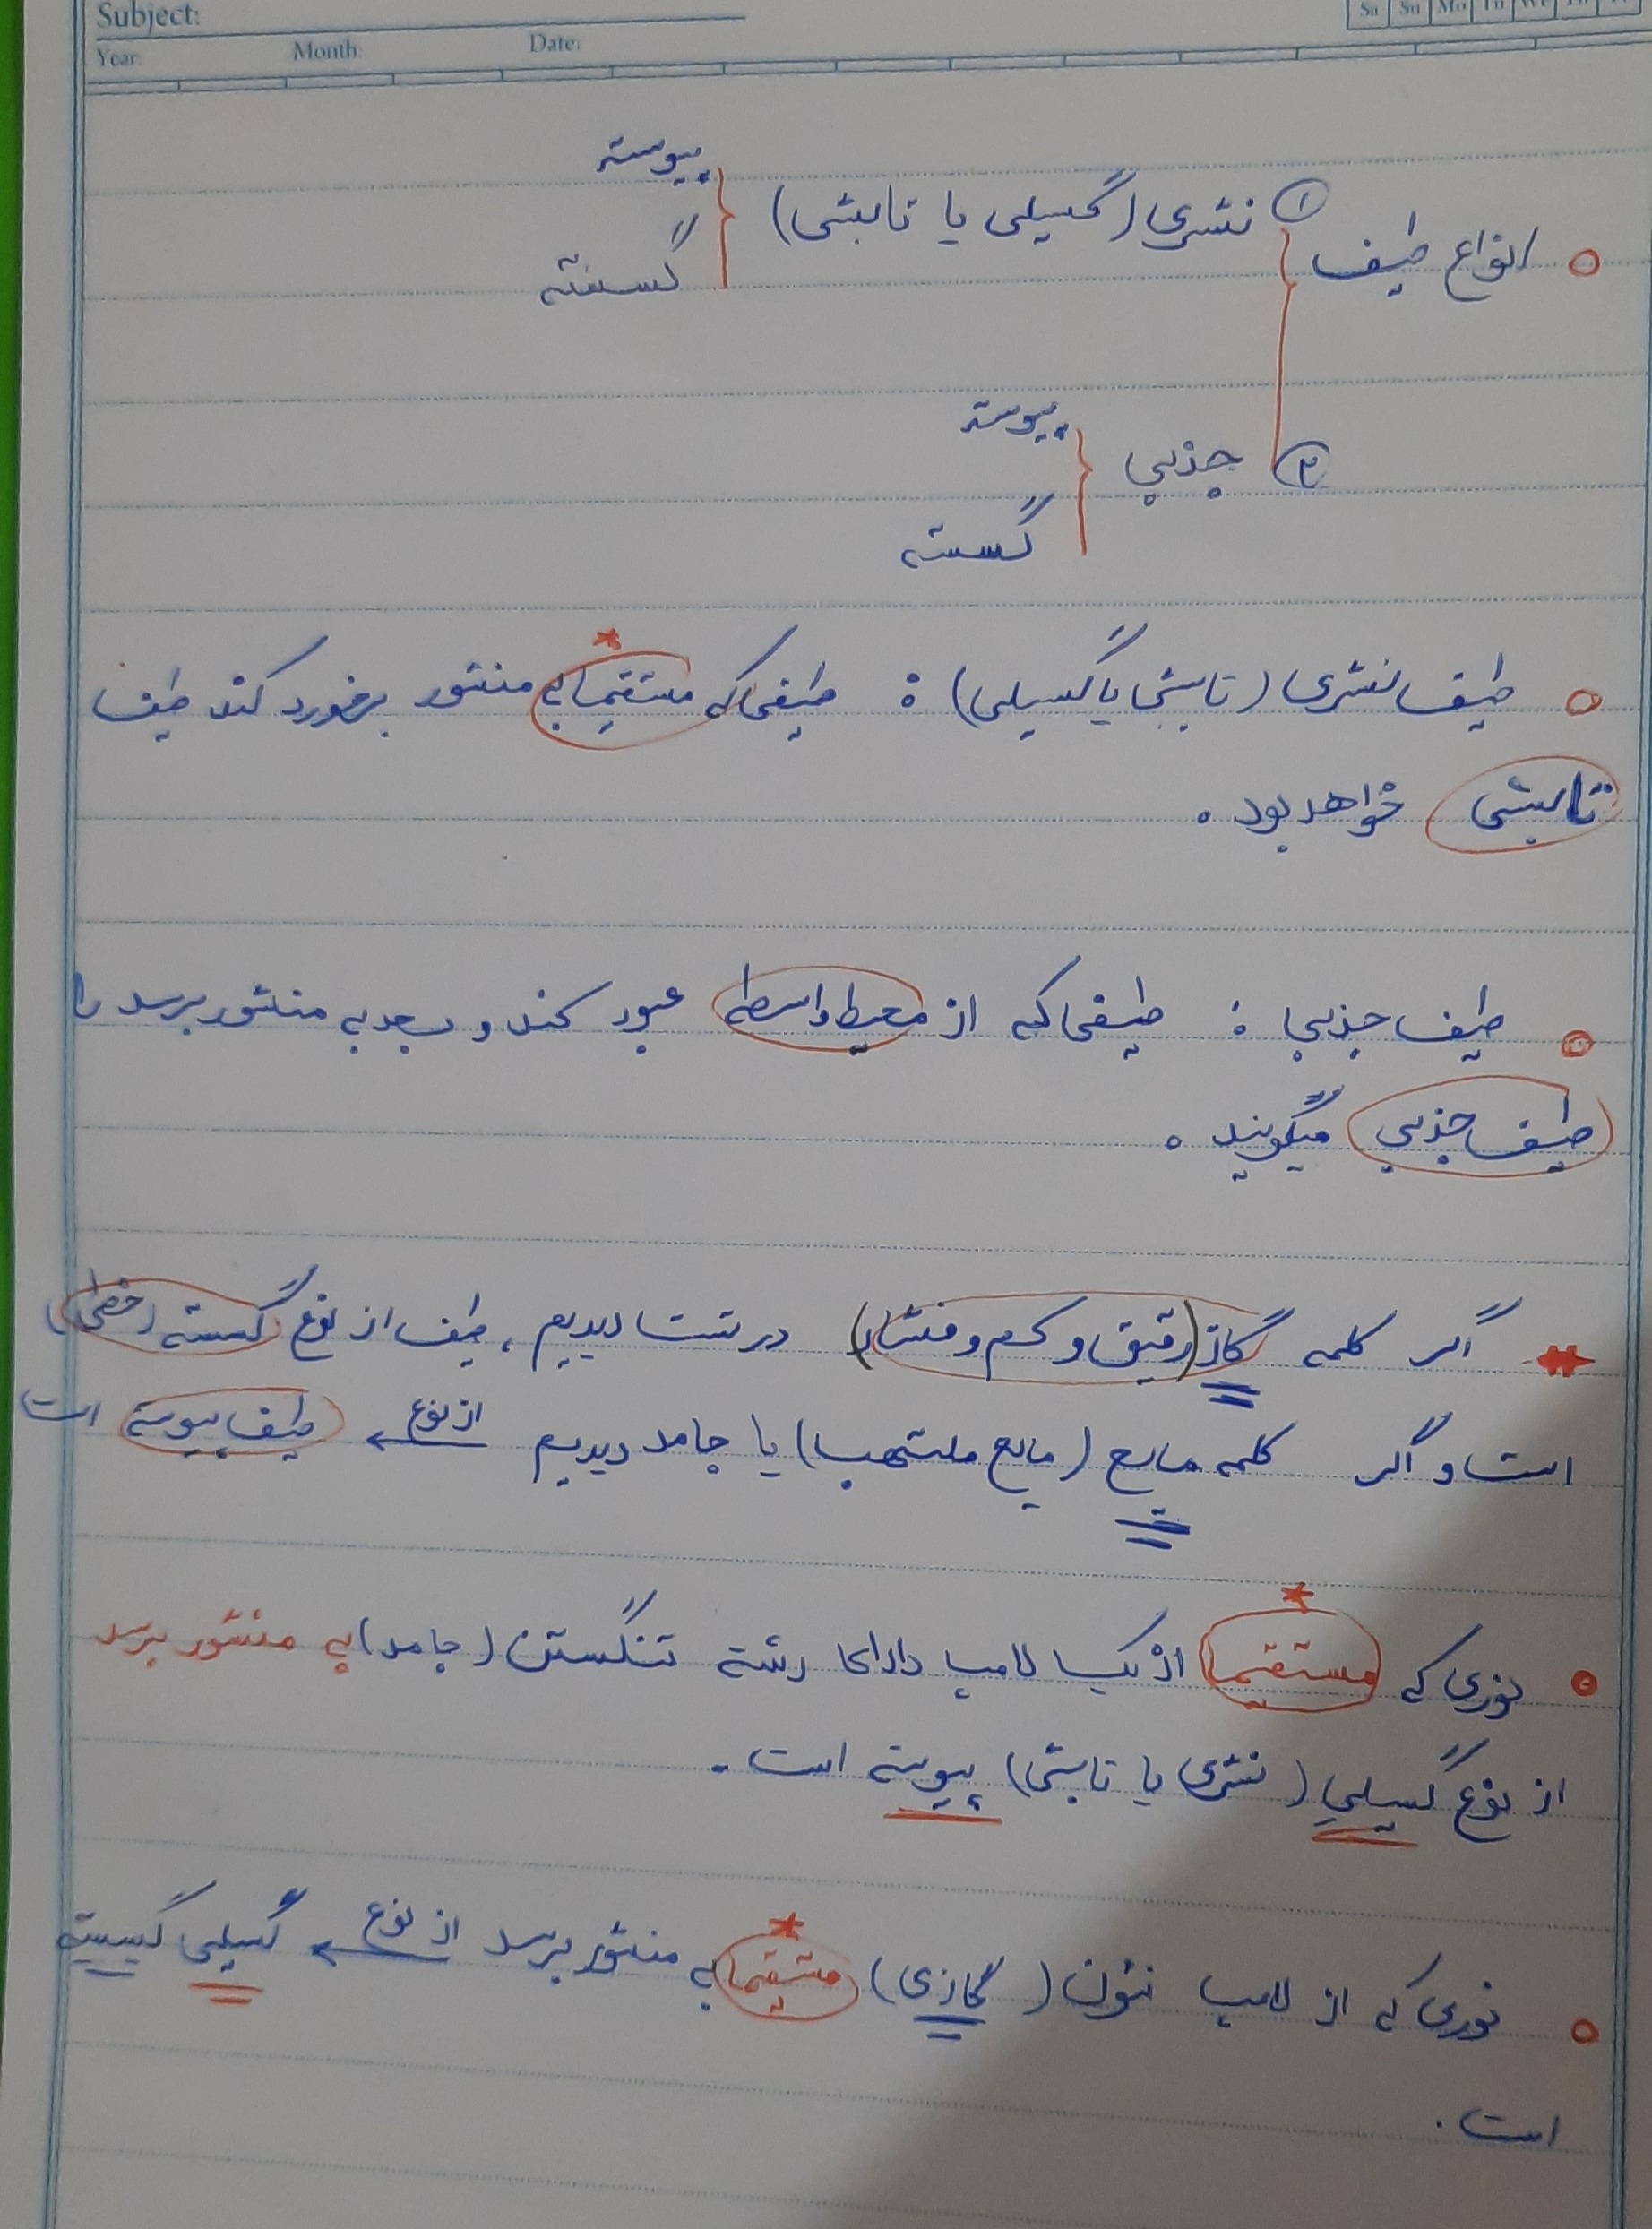 Subject:
Sa Su Mo Tu We
Year: Month: Date:
انواع طیف
① نشری (گسیلی یا تابشی)
پیوسته
گسسته
② جذبی
پیوسته
گسسته
طیف نشری (تابشی یا گسیلی) : طیفی که مستقیما به منشور برخورد کند طیف
تابشی خواهد بود .
طیف جذبی : طیفی که از محیط واسطه عبور کند و بعد به منشور برسد را
طیف جذبی میگویند .
* اگر کلمه گاز (رقیق و کم و فشار) در تست دیدیم ، طیف از نوع گسسته (خطی)
است و اگر کلمه مایع (مایع ملتهب) یا جامد دیدیم از نوع ← طیف پیوسته است
نوری که مستقیما از یک لامپ دارای رشته تنگستن (جامد) به منشور برسد
از نوع گسیلی (نشری یا تابشی) پیوسته است .
نوری که از لامپ نئون (گازی) مستقیما به منشور برسد از نوع ← گسیلی گسسته
است .